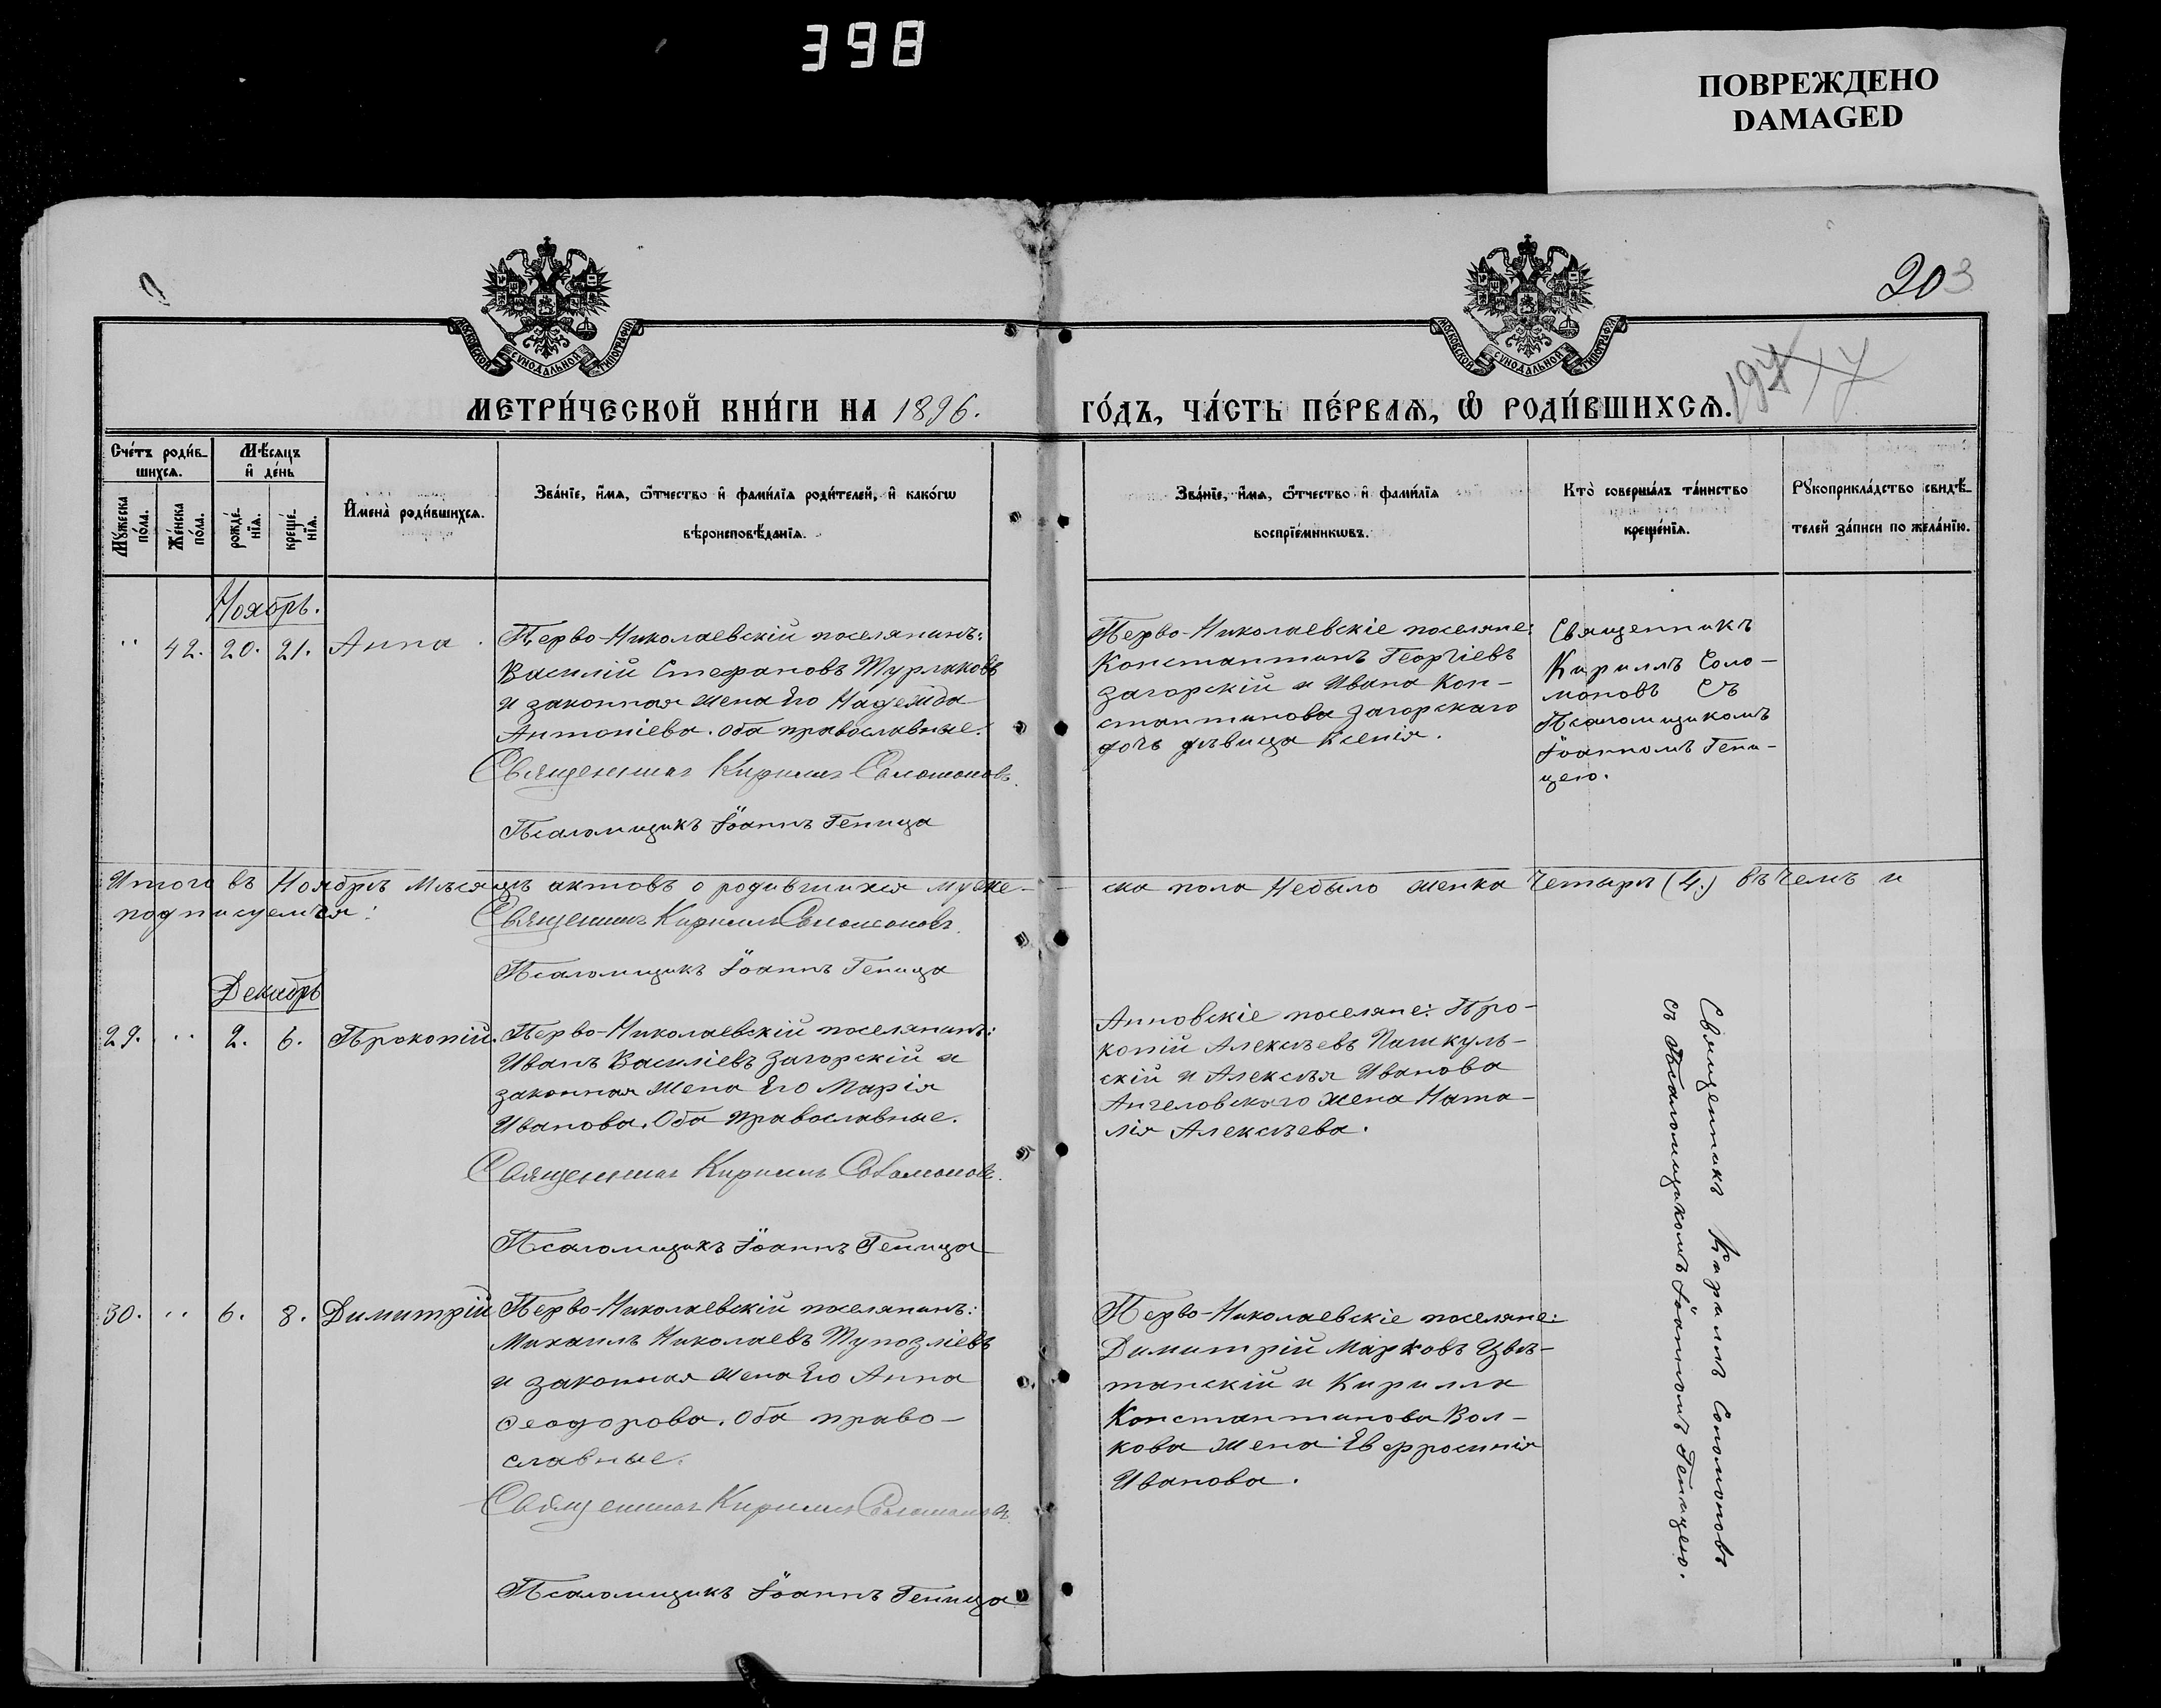 398
ПОВРЕЖДЕНО
DAMAGED
203
МОСКОВСКОЙ СУНОДАЛЬНОЙ ТИПОГРАФІИ
МОСКОВСКОЙ СУНОДАЛЬНОЙ ТИПОГРАФІИ
МЕТРИ́ЧЕСКОЙ КНИ́ГИ НА 1896.
ГО́ДЪ, ЧА́СТЬ ПЕ́РВАѦ, Ѽ РОДИ́ВШИХСѦ.
Сче́тъ роди́в-
шихсѧ.
Мꙋ́жеска по́ла.
Же́нска по́ла.
Мѣ́сѧцъ
и҆ де́нь
рожде́нїѧ.
креще́нїѧ.
И҆мена̀ роди́вшихсѧ.
Зва́нїе, и҆́мѧ, ѻ҆́тчество и҆ фами́лїѧ роди́телей, и҆ како́гѡ
вѣроисповѣ́данїѧ.
Зва́нїе, и҆́мѧ, ѻ҆́тчество и҆ фами́лїѧ
воспрїе́мникѡвъ.
Кто̀ соверша́лъ та́инство
креще́нїѧ.
Рꙋкоприкла́дство свидѣ́-
телей за́писи по жела́нїю.
Ноябрь.
" 42. 20. 21. Анна.
Перво-Николаевскій поселянинъ:
Василій Стефановъ Турлаковъ
и законная жена Его Надежда
Антоніева. Оба православные.
Священникъ Кириллъ Соломоновъ.
Псаломщикъ Іоаннъ Геница
Перво-Николаевскіе поселяне:
Константинъ Георгіевъ
Загорскій и Ивана Кон-
стантинова Загорскаго
дочь дѣвица Ксенія.
Священникъ
Кириллъ Соло-
моновъ Съ
Псаломщикомъ
Іоанномъ Гени-
цею.
Итого въ Ноябрѣ Мѣсяцѣ актовъ о родившихся муже-
ска пола Небыло женка Четыри (4.) въ чемъ и
подписуемся:
Священникъ Кириллъ Соломоновъ.
Псаломщикъ Іоаннъ Геница
Декабрь
29. " 2. 6. Прокопій.
Перво-Николаевскій поселянинъ:
Иванъ Василіевъ Загорскій и
законная жена Его Марія
Иванова. Оба православные.
Священникъ Кириллъ Соломоновъ.
Псаломщикъ Іоаннъ Геница
Анновскіе поселяне: Про-
копій Алексѣевъ Пашкуль-
скій и Алексѣя Иванова
Ангеловскаго жена Ната-
лія Алексѣева.
Священникъ Кириллъ Соломоновъ
съ Псаломщикомъ Іоанномъ Геницею.
30. " 6. 8. Димитрій
Перво-Николаевскій поселянинъ:
Михаилъ Николаевъ Тупозліевъ
и законная жена Его Анна
Ѳеодорова. Оба право-
славные.
Священникъ Кириллъ Соломоновъ
Псаломщикъ Іоаннъ Геница
Перво-Николаевскіе поселяне:
Димитрій Марковъ Цвѣ-
танскій и Кирилла
Константинова Вол-
кова жена Евфросинія
Иванова.